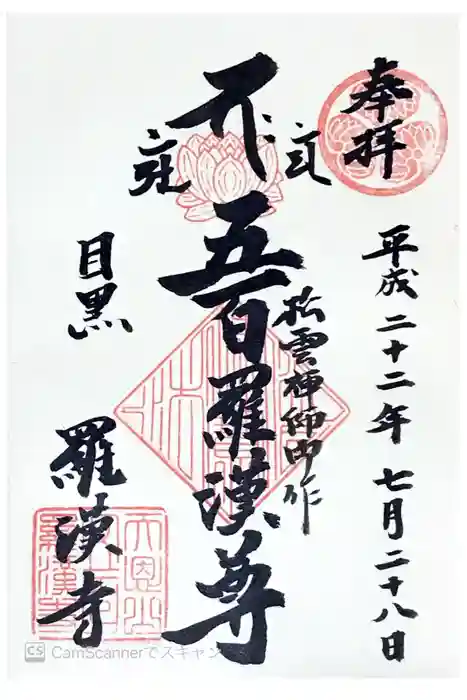 奉拝
平成二十二年七月二十八日
松雲禅師御作
五百羅漢尊
目黒
羅漢寺
CS CamScannerでスキャン